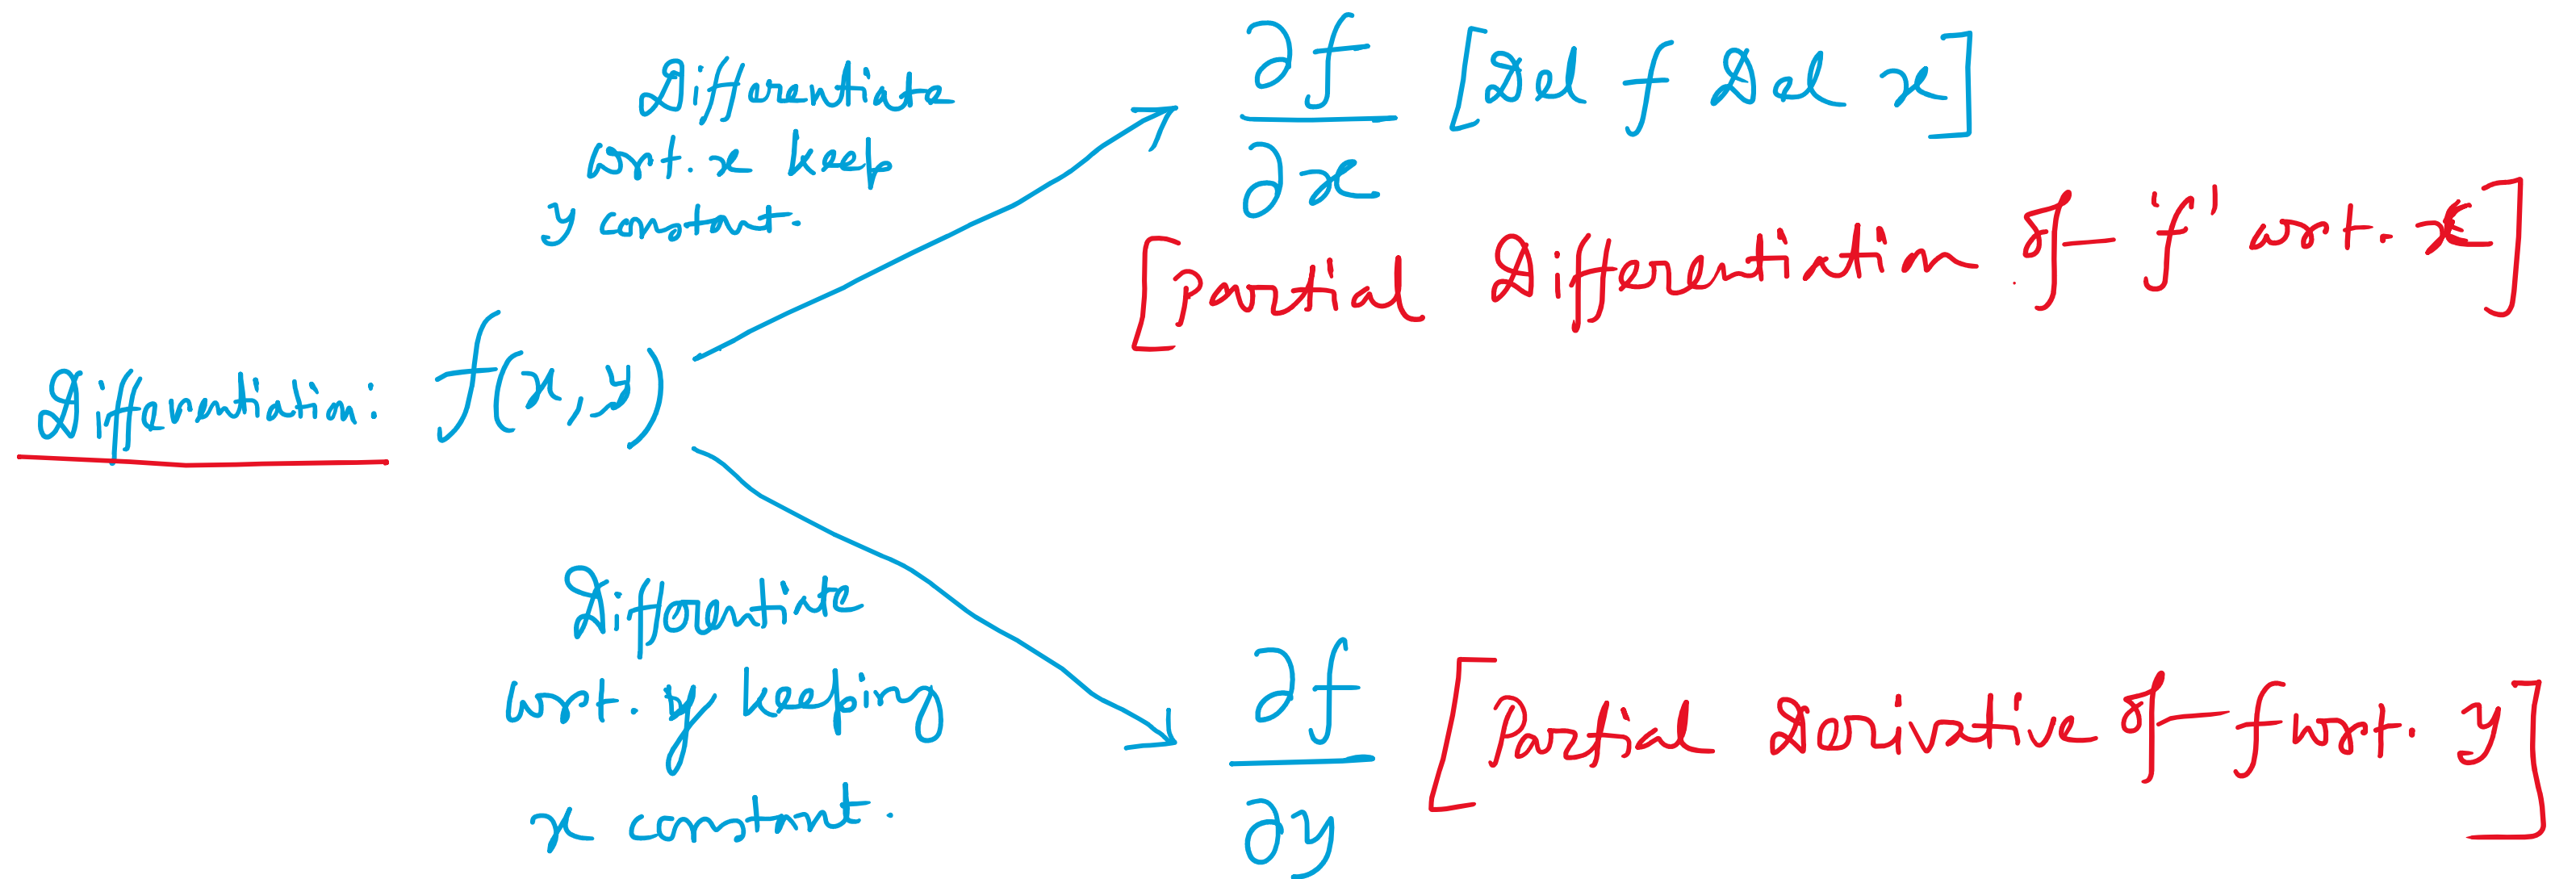 Differentiation: f(x,y)
Differentiate
wrt. x keep
y constant.
∂f/∂x [Del f Del x]
[Partial Differentiation of 'f' wrt. x]
Differentiate
wrt. y keeping
x constant.
∂f/∂y [Partial Derivative of f wrt. y]